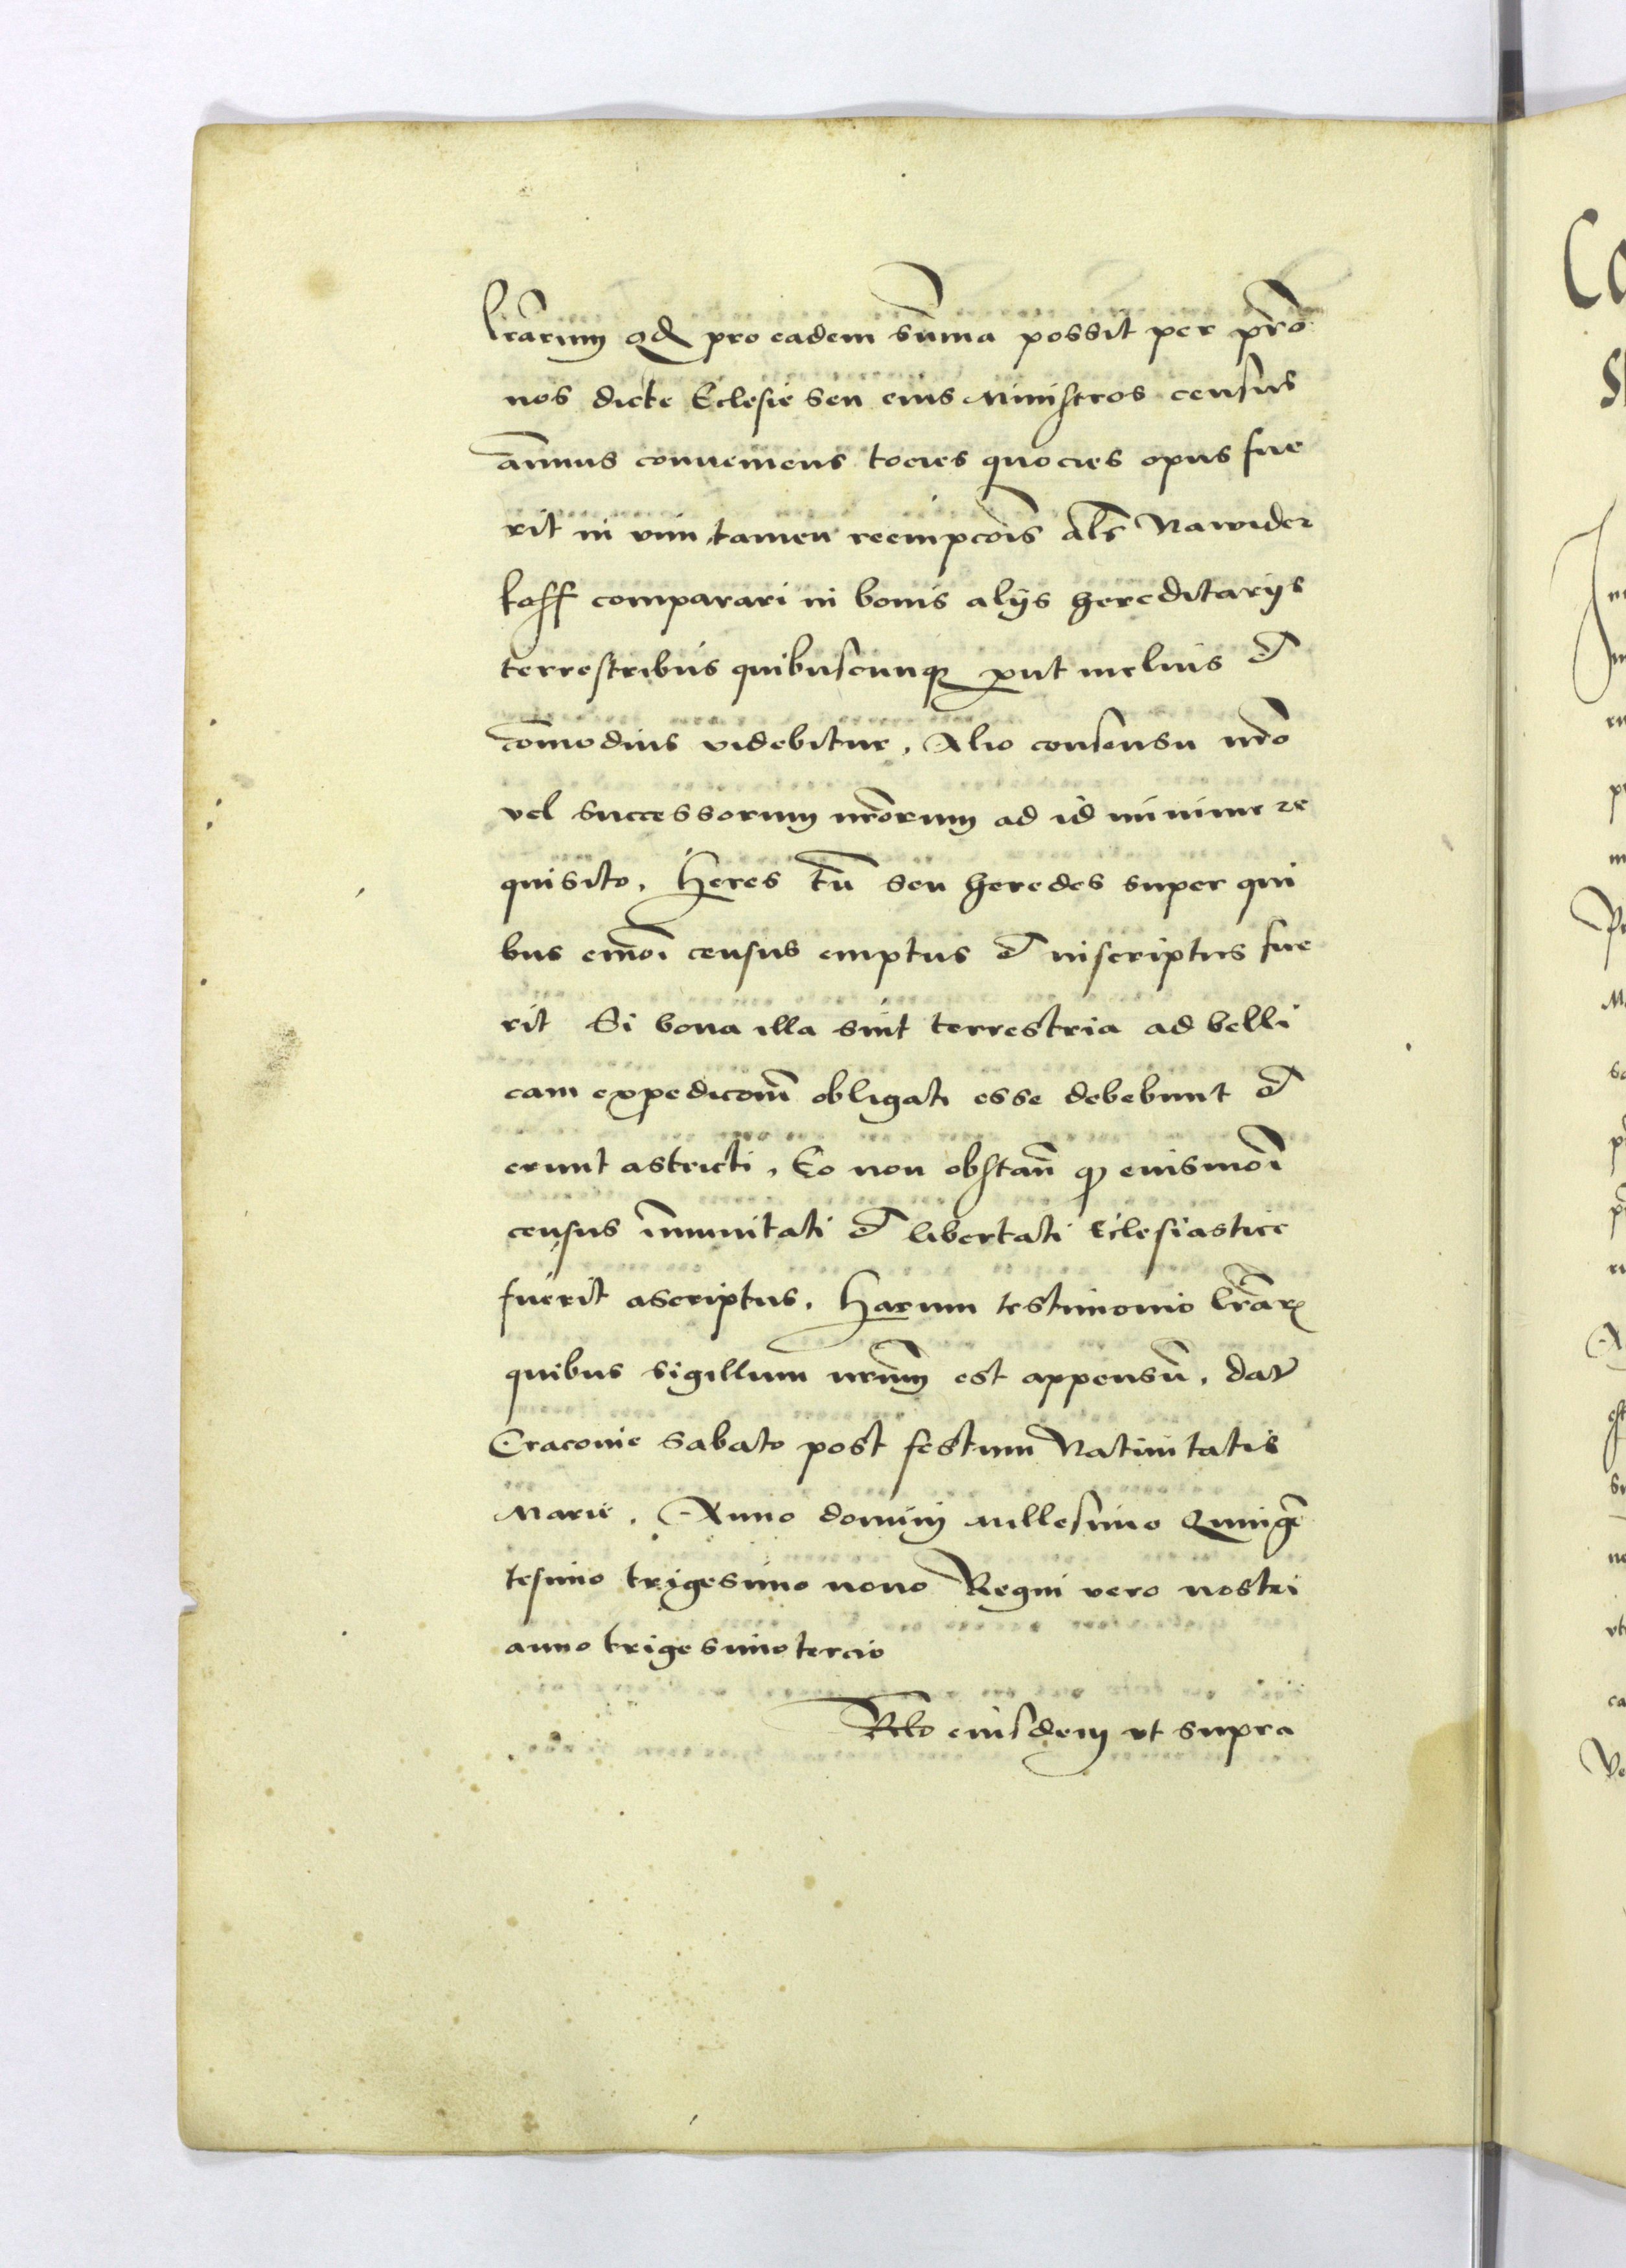 lr̄arum qđ pro eadem sum̄a possit per pr̄o
nos dicte Eclesie seu eius Ministros census
an̄uus conueniens tocies quocies opus fue
rit in vim tamen reempcōis als̄ Nawider
koff comparari in bonis alijs hereditarijs
terrestribus quibuscunqꝫ ꝓut melius et
com̄odius videbitur, Alio consensu nr̄o
vel successorum nr̄orum ad id minime re
quisito, Heres tn̄ seu heredes super qui
bus eiusm̄oi census emptus et inscriptus fue
rit Si bona illa sint terrestria ad belli
cam expedicōnem̄ obligati esse debebunt et
erunt astricti, Eo non obstan̄ qꝫ eiusmōi
census im̄unitati et libertati Eclesiastice
fuerit ascriptus, Harum testimonio lr̄arꝝ
quibus sigillum nr̄um est appensū, datꝭ
Cracouie Sabato post festum Natiuitatis
Marie, Anno domini millesimo Quingē
tesimo trigesimo nono Regni vero nostri
anno trigesimo tercio
Rl̄o eiusdem vt supra
Ca